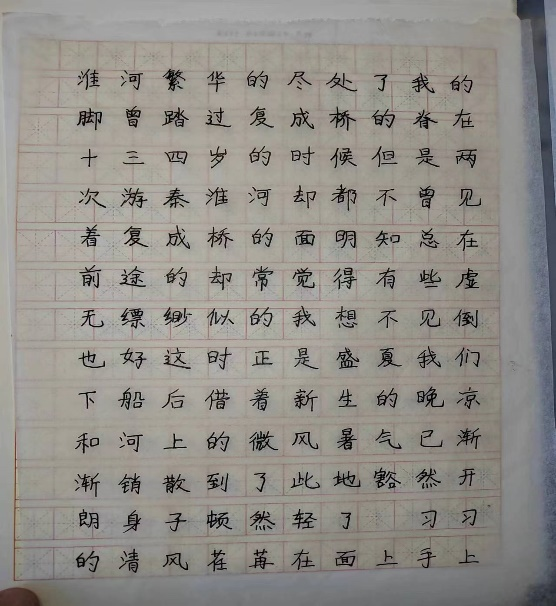 淮河繁华的尽处了我的
脚曾踏过复成桥的脊在
十三四岁的时候但是两
次游秦淮河却都不曾见
着复成桥的面明知总在
前途的却常觉得有些虚
无缥缈似的我想不见倒
也好这时正是盛夏我们
下船后借着新生的晚凉
和河上的微风暑气已渐
渐销散到了此地豁然开
朗身子顿然轻了 习习
的清风荏苒在面上手上